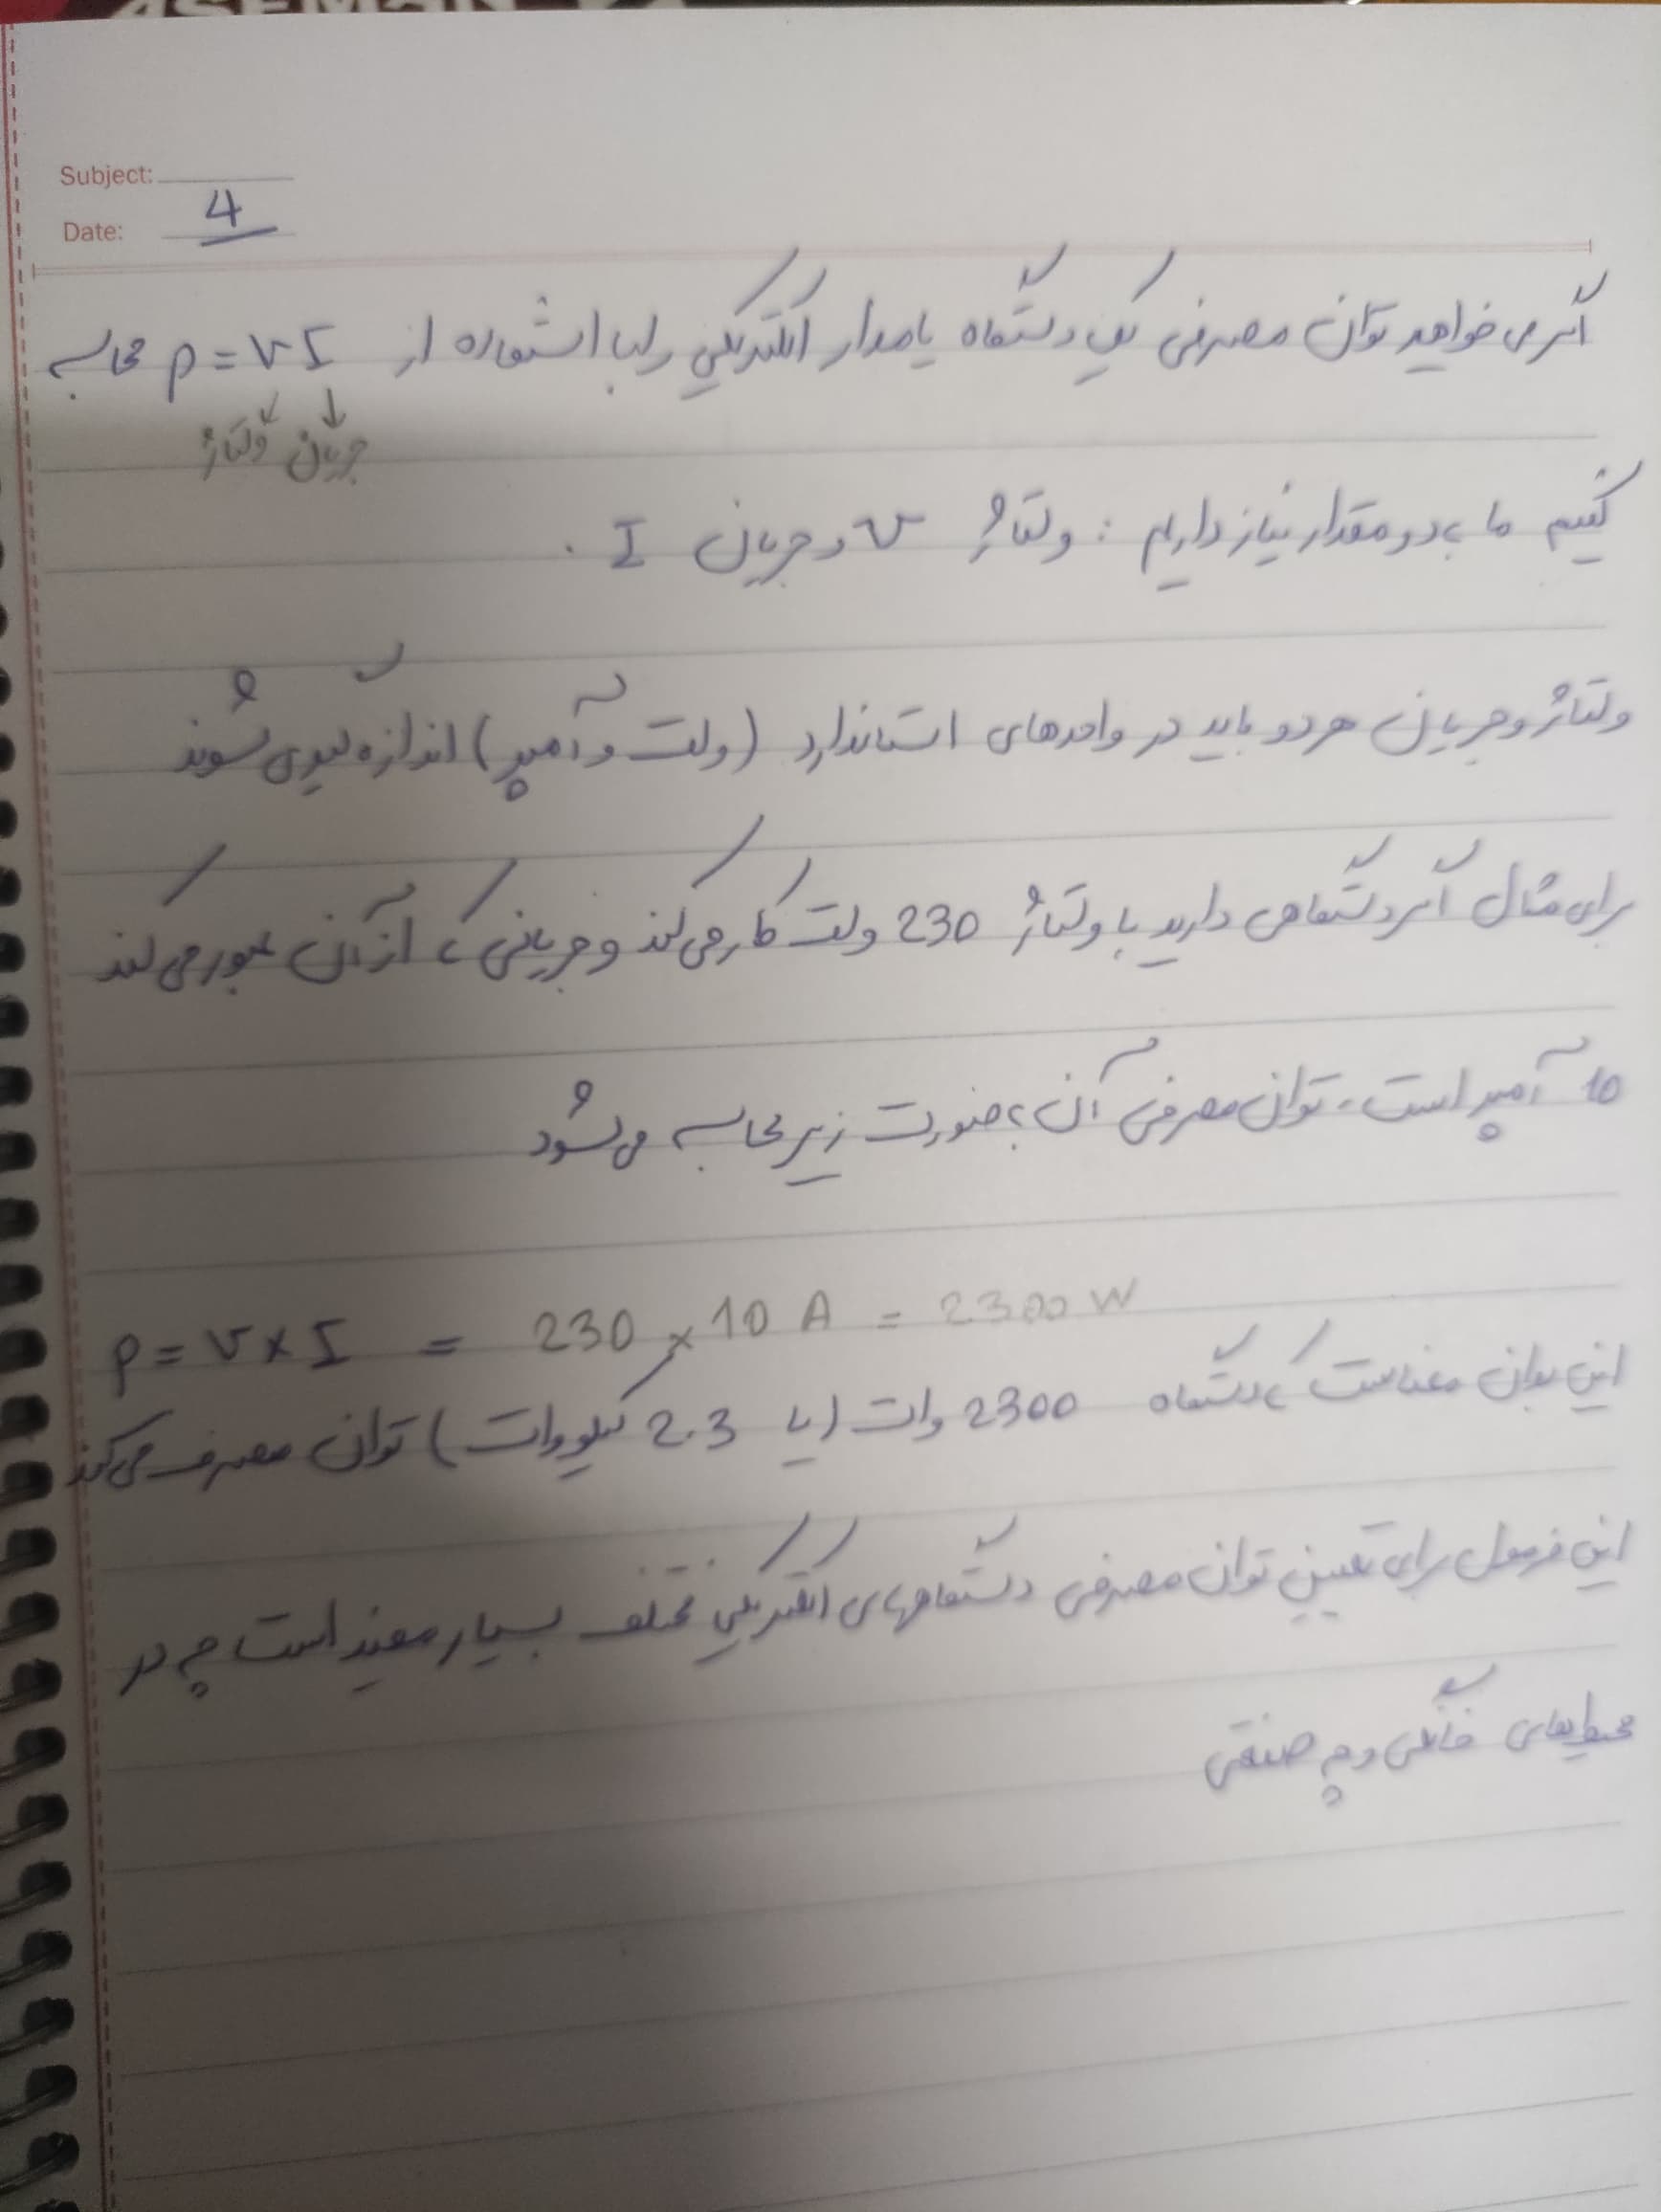 Subject:
Date: 4
اگر می خواهید توان مصرفی یک دستگاه یا مدار الکتریکی را با استفاده از P = VI محاسبه
جریان ولتاژ
کنیم ما به دو مقدار نیاز داریم : ولتاژ V و جریان I .
ولتاژ و جریان هر دو باید در واحدهای استاندارد (ولت و آمپر) اندازه گیری شوند
برای مثال اگر دستگاهی دارید با ولتاژ 230 ولت کار می کند و جریانی که از آن عبور می کند
10 آمپر است، توان مصرفی آن به صورت زیر محاسبه می شود
P = V × I = 230 × 10 A = 2300 W
این بدان معناست که دستگاه 2300 وات (یا 2.3 کیلووات) توان مصرف می کند
این فرمول برای تعیین توان مصرفی دستگاههای الکتریکی مختلف بسیار مفید است چه در
محیطهای خانگی و چه صنعتی